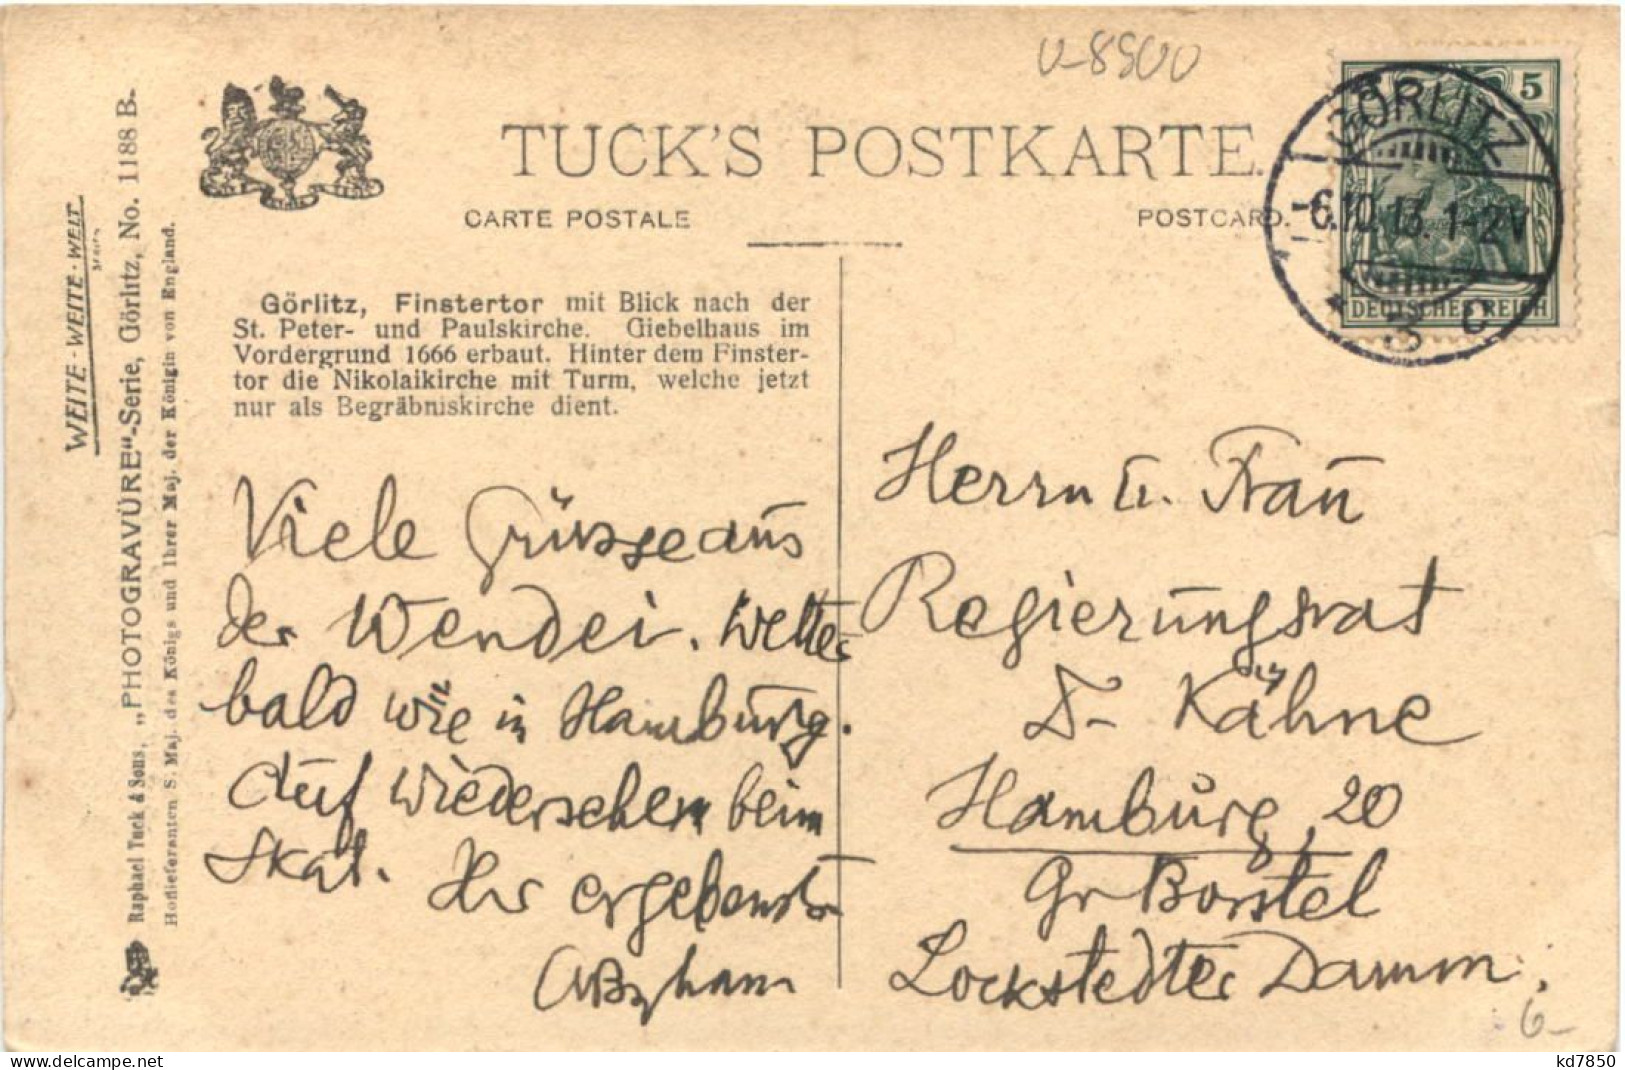 U-8900
TUCK'S POSTKARTE.
CARTE POSTALE
POSTCARD.
5
GÖRLITZ
-6.10.13. 1-2V
* 3 c
DEUTSCHES REICH
WEITE-WEITE-WELT
Raphael Tuck & Sons, „PHOTOGRAVÜRE"-Serie, Görlitz, No. 1188 B.
Hoflieferanten S. Maj. des Königs und Ihrer Maj. der Königin von England.
Görlitz, Finstertor mit Blick nach der
St. Peter- und Paulskirche. Giebelhaus im
Vordergrund 1666 erbaut. Hinter dem Finster-
tor die Nikolaikirche mit Turm, welche jetzt
nur als Begräbniskirche dient.
Viele Grüsse aus
der Wendei. Wetter
bald wie in Hamburg.
Auf Wiedersehen beim
Skat. Ihr ergebenster
Herrn u. Frau
Regierungsrat
Dr Kähne
Hamburg, 20
Gr Borstel
Lockstedter Damm.
6-
www.delcampe.net
kd7850